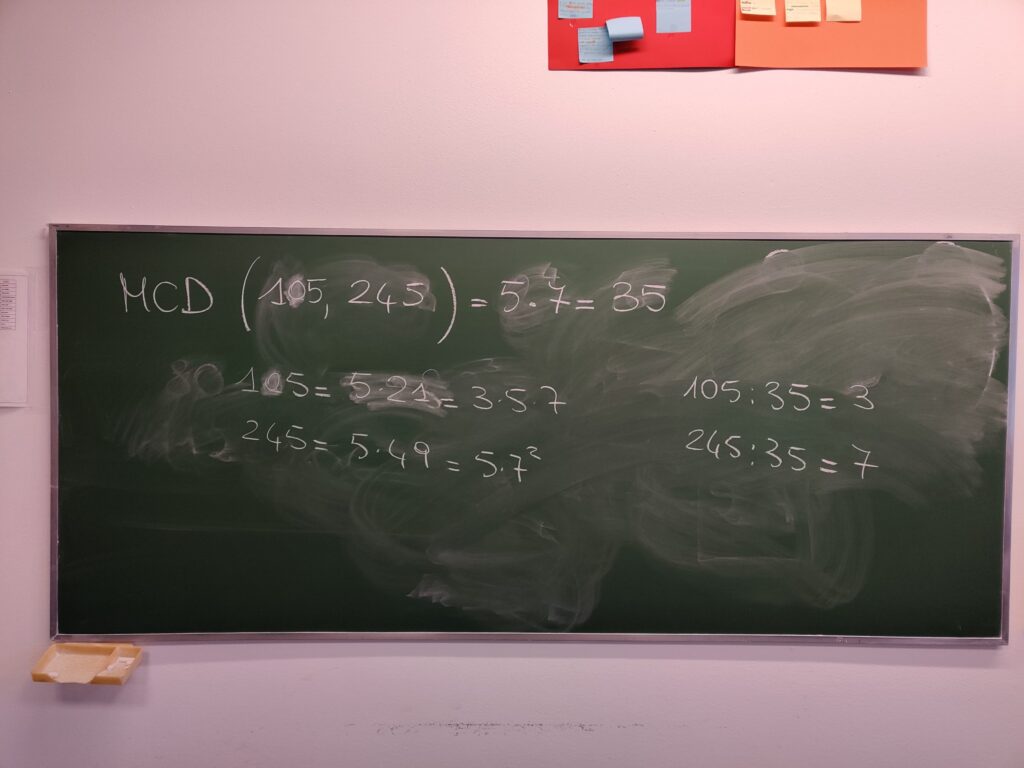 MCD (105, 245) = 5·7 = 35
105 = 5·21 = 3·5·7
245 = 5·49 = 5·7²
105:35 = 3
245:35 = 7